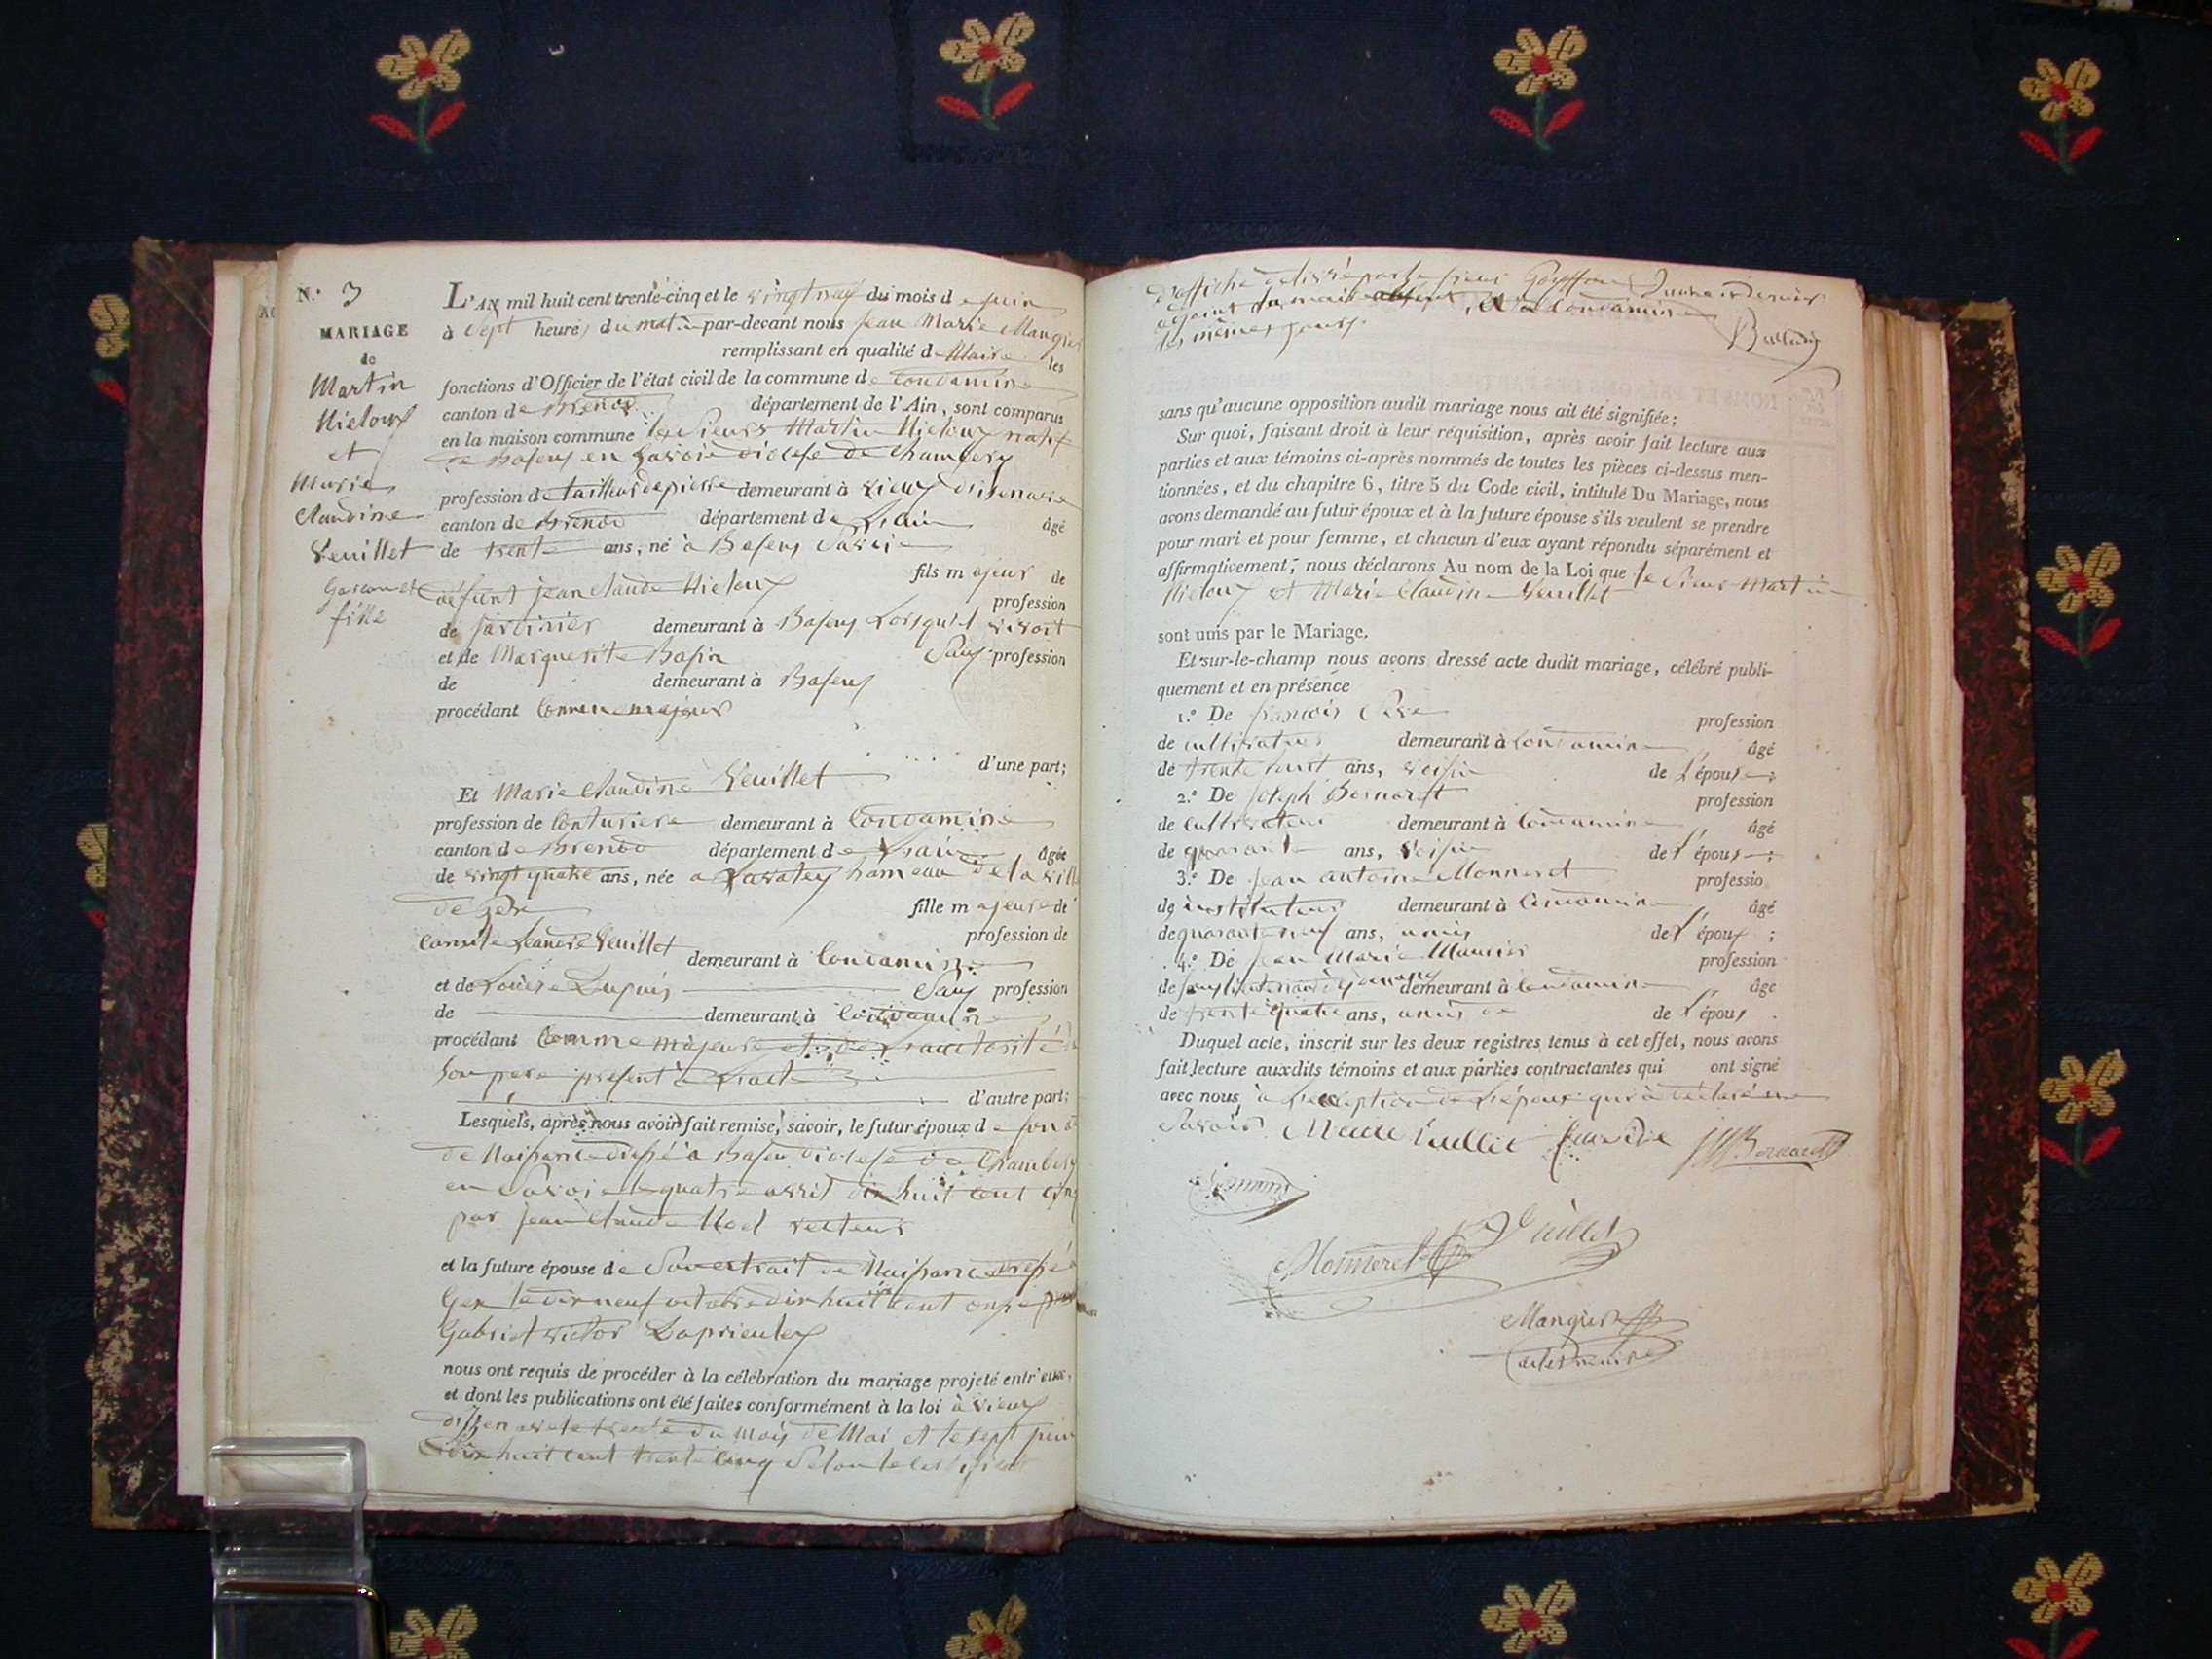 N.° 3
MARIAGE
de
Martin
Nicloux
et
Marie
Claudine
Veuillet
Garcon et
fille
L'AN mil huit cent trente-cinq et le vingt neuf du mois de juin
à sept heures du matin par-devant nous Jean Marie Mangier
remplissant en qualité de Maire les
fonctions d'Officier de l'état civil de la commune de Condamine
canton de Brenod département de l'Ain, sont comparus
en la maison commune les Sieurs Martin Nicloux natif
de Basens en Savoie diocese de Chambery
profession de tailleur de pierre demeurant à Vieux d'isenave
canton de Brenod département de Lain âgé
de trente ans, né à Basens Savoie
fils majeur de
défunt jean Claude Nicloux profession
de jardinier demeurant à Basens Lorsqu'il vivoit
et de Marguerite Basin Sans profession
de demeurant à Basens
procédant comme majeur
d'une part;
Et Marie Claudine Veuillet
profession de Couturiere demeurant à Condamine
canton de Brenod département de Lain âgée
de vingt quatre ans, née a Lavatey hameau de la ville
de Gex fille majeure de
Veuillet profession de
demeurant à Condamine
et de Louise Dupuis Sans profession
de demeurant à Condamine
procédant Comme majeure et de Lauctorité de
Son pere présent à Lacte
d'autre part;
Lesquels, après nous avoir fait remise, savoir, le futur époux de son
de Naissance dressé à Basen diocese de Chambery
en Savoie le quatre avril dix huit cent cinq
par jean Claude Noel recteur
et la future épouse de Son extrait de Naissance dressé à
Gex le dix neuf octobre dix huit cent onze par
Gabriel victor
nous ont requis de procéder à la célébration du mariage projeté entr'eux,
et dont les publications ont été faites conformément à la loi à vieux
disenave le trente du mois de Mai et le sept juin
dix huit cent trente cinq Selon le certificat
d'affiche delivré par le sieur
adjoint du maire et à Condamine
les mêmes jours.
sans qu'aucune opposition audit mariage nous ait été signifiée;
Sur quoi, faisant droit à leur réquisition, après avoir fait lecture aux
parties et aux témoins ci-après nommés de toutes les pièces ci-dessus men-
tionnées, et du chapitre 6, titre 5 du Code civil, intitulé Du Mariage, nous
avons demandé au futur époux et à la future épouse s'ils veulent se prendre
pour mari et pour femme, et chacun d'eux ayant répondu séparément et
affirmativement; nous déclarons Au nom de la Loi que le Sieur Martin
Nicloux et Marie Claudine Veuillet
sont unis par le Mariage.
Et sur-le-champ nous avons dressé acte dudit mariage, célébré publi-
quement et en présence
1.° De françois profession
de cultivateur demeurant à Condamine âgé
de trente huit ans, voisin de l'épouse;
2.° De joseph Bornaret profession
de cultivateur demeurant à Condamine âgé
de quarante ans, voisin de l'épouse;
3.° De jean antoine Monneret professio
de instituteur demeurant à Condamine âgé
de quarante neuf ans, amis de l'époux;
4.° De jean Marie Maurier profession
de demeurant à Condamine âge
de trente quatre ans, amis de de l'époux.
Duquel acte, inscrit sur les deux registres tenus à cet effet, nous avons
fait lecture auxdits témoins et aux parties contractantes qui ont signé
avec nous, à l'exception de l'époux qui à déclaré ne
Savoir.
Monneret
Mangier
maire